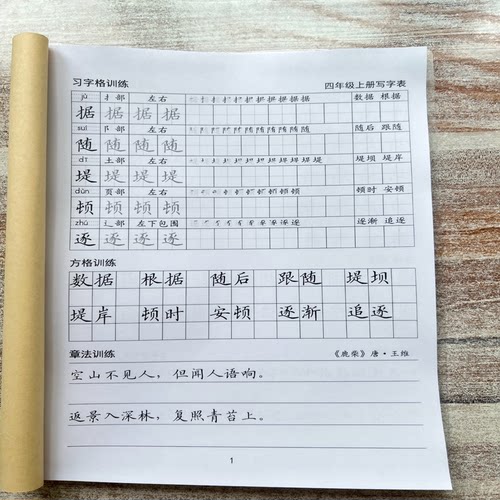 习字格训练 四年级上册写字表
jù 扌部 左右 数据 根据
据 据 据 据
suí 阝部 左右 随后 跟随
随 随 随 随
dī 土部 左右 堤坝 堤岸
堤 堤 堤 堤
dùn 页部 左右 顿时 安顿
顿 顿 顿 顿
zhú 辶部 左下包围 逐渐 追逐
逐 逐 逐 逐
方格训练
数据 根据 随后 跟随 堤坝
堤岸 顿时 安顿 逐渐 追逐
章法训练 《鹿柴》唐·王维
空山不见人，但闻人语响。
返景入深林，复照青苔上。
1